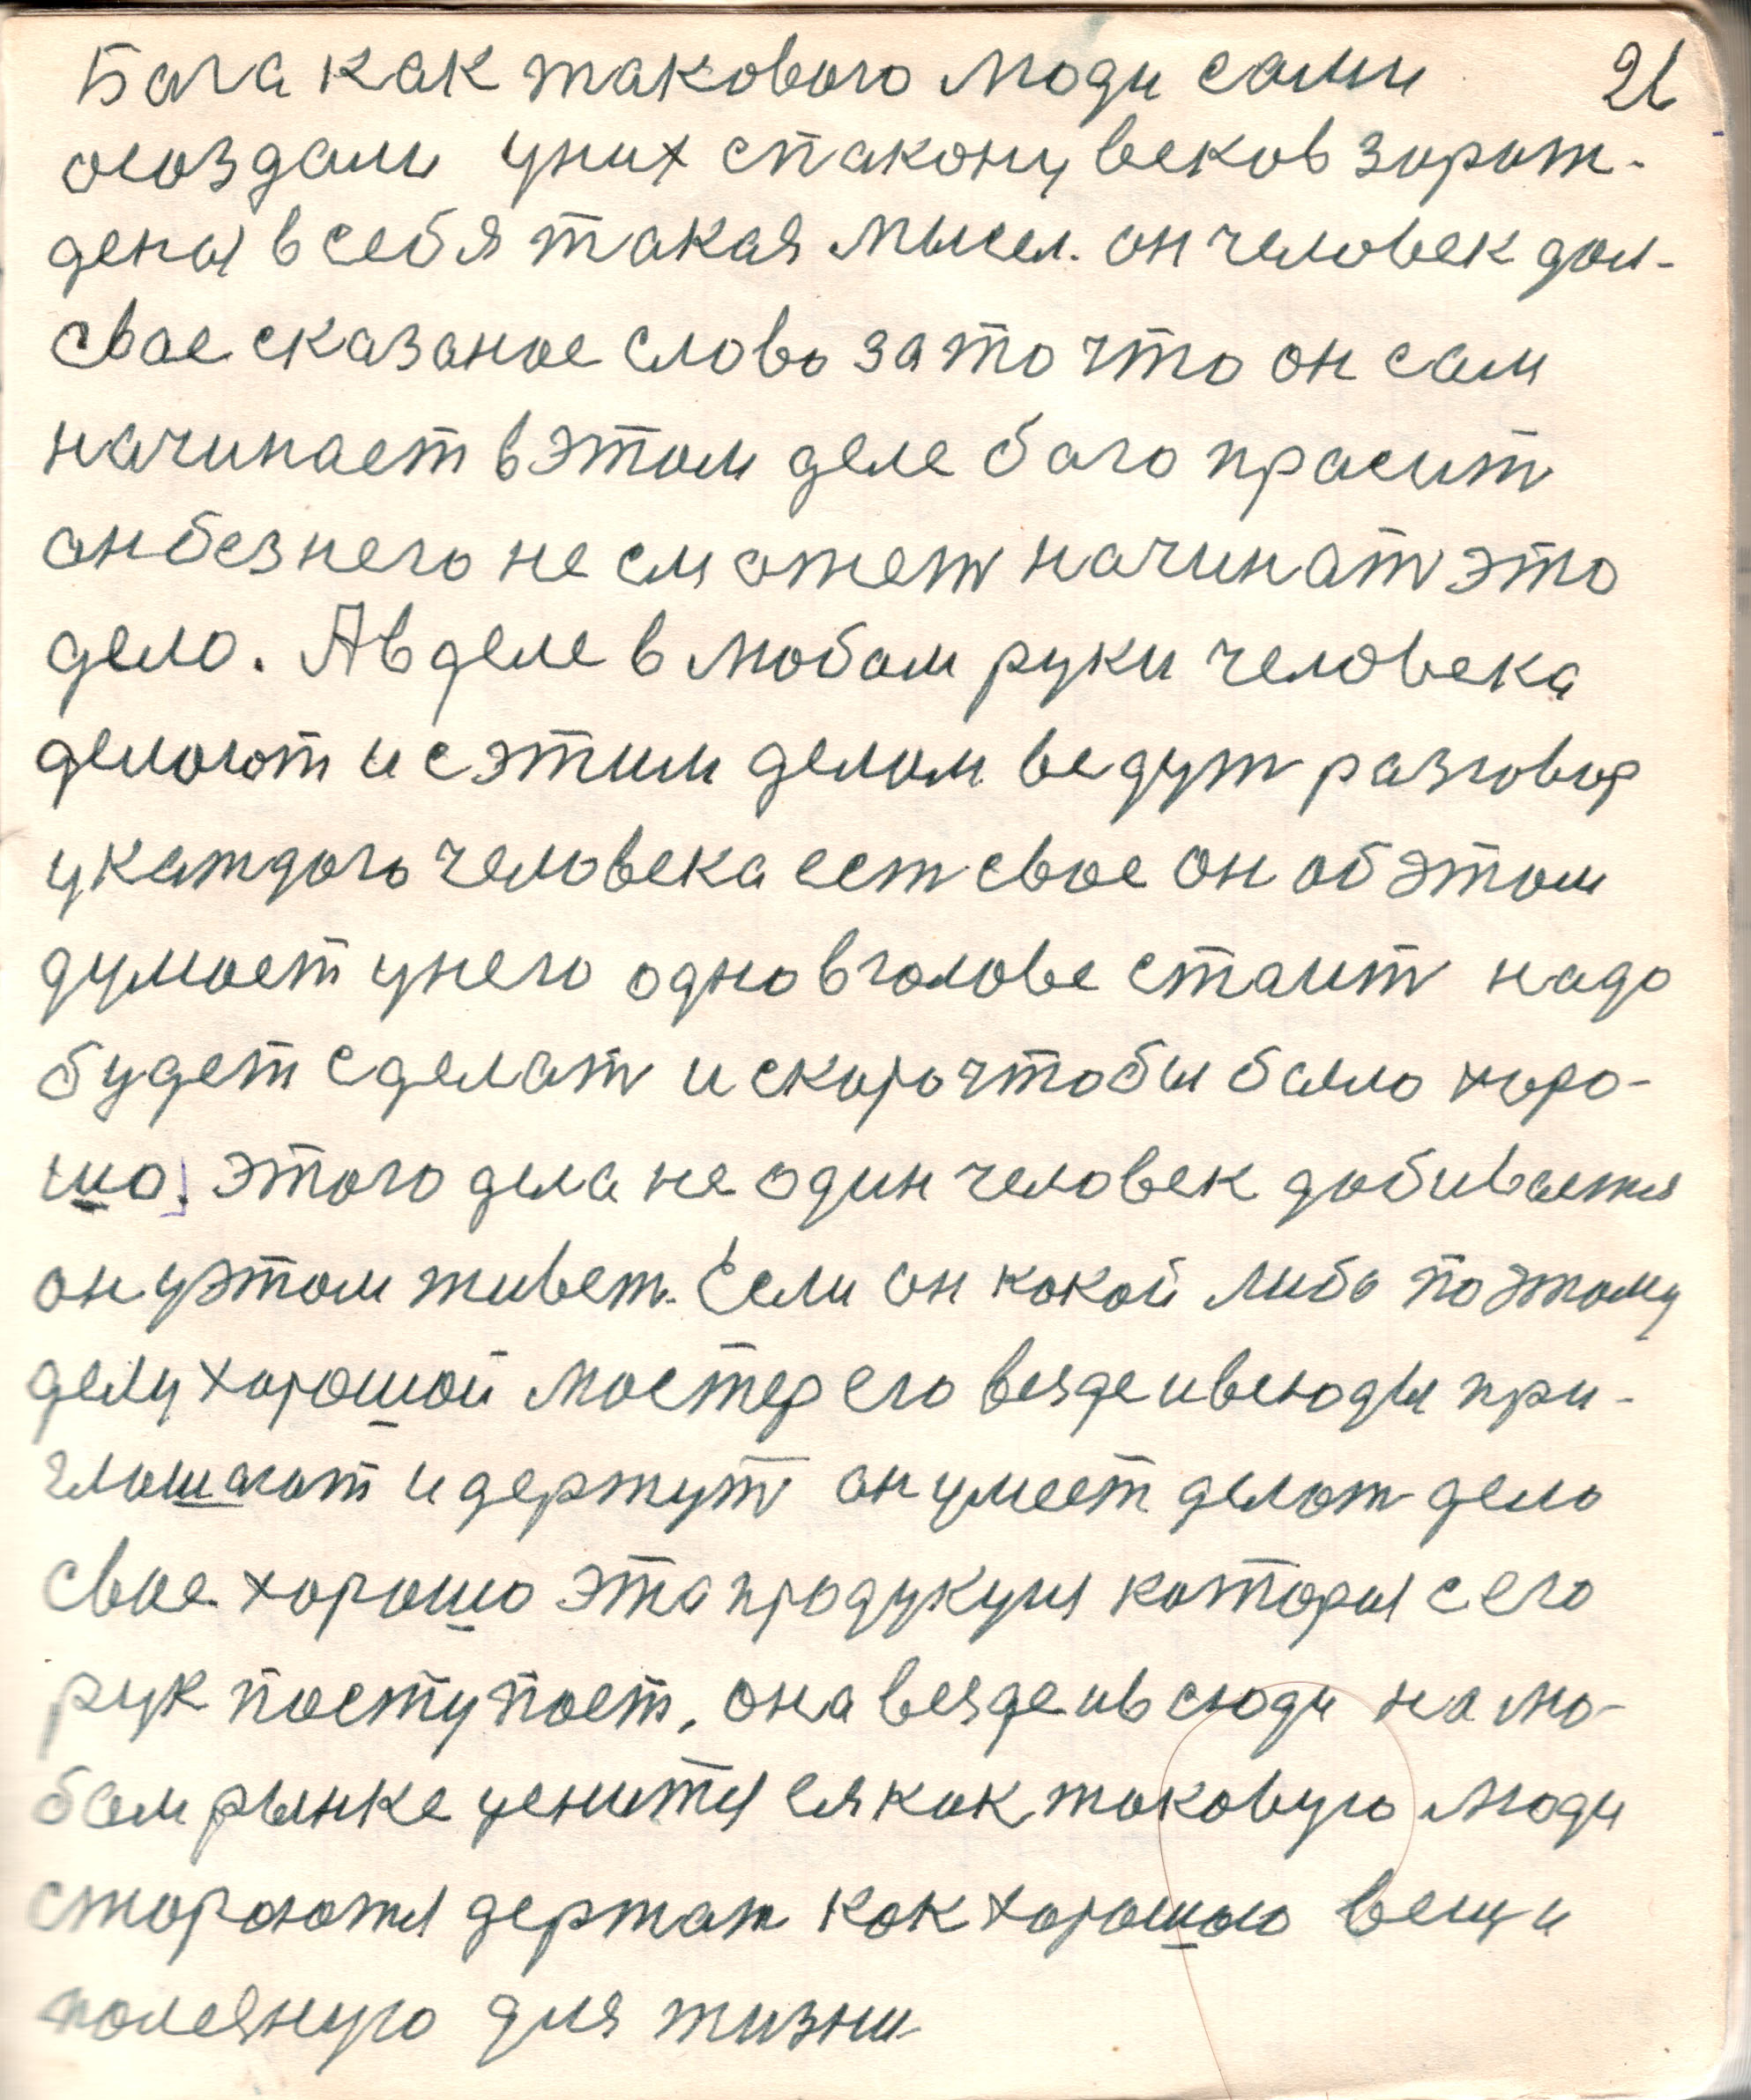 Бага как такового люди сами 21
оюздали у них спакону веков зарож-
дены в себя такая мысел. он человек дал-
свае сказаное слово за то что он сам
начинает в этом деле баго прасит
он без него не сможет начинат это
дело. А в деле в любом руки человека
делают и с этим делом ведут разговор
у каждого человека ест свое он об этом
думает у него одно в голове стаит надо
будет сделат и скоро чтобы было хоро-
шо. этого дела не один человек добивается
он у этом живет. Если он какой либо по этому
делу хорошой мастер его везде и всюды при-
глашают и держут он умеет делат дело
свое хорошо эта продукция которыя с его
рук поступает, она везде и всюди на лю-
бом рынке ценится ея как таковую люди
стораются держат как хорошою вещи
полезную для жизни